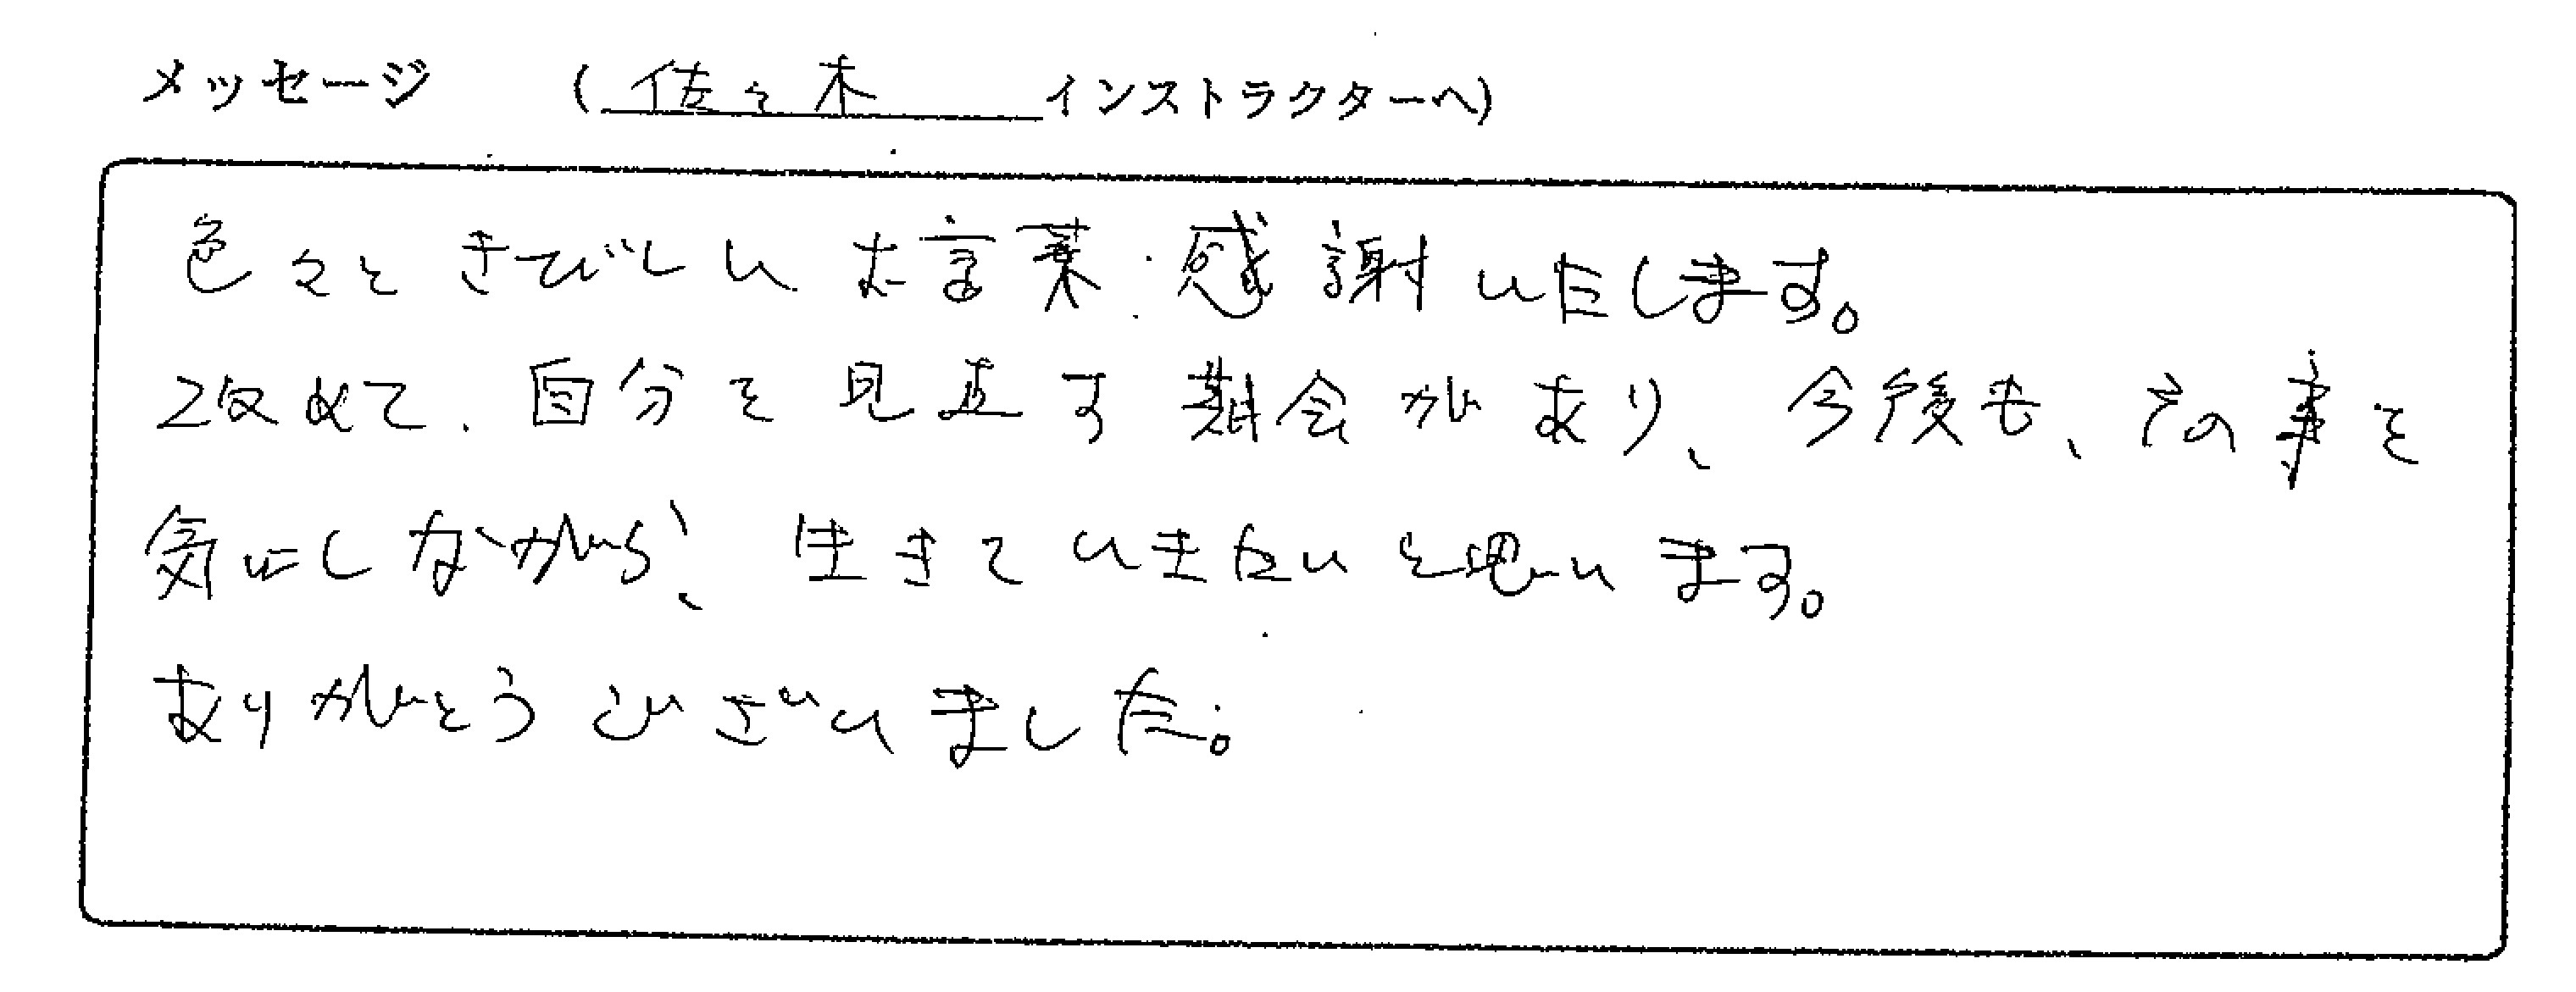 メッセージ (佐々木 インストラクターへ)
色々と きびしい お言葉 感謝いたします。
改めて、自分を見直す機会があり、今後も、その事を
気にしながら、生きていきたいと思います。
ありがとうございました。